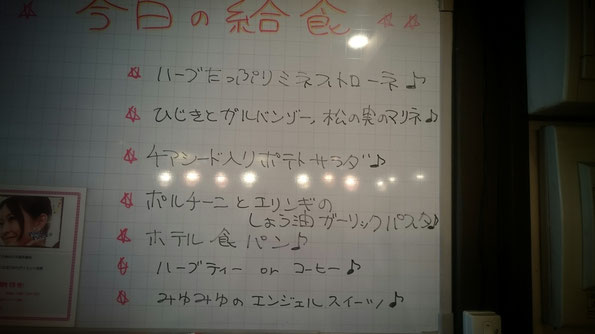 ☆ 今日の給食 ☆☆
☆ ハーブたっぷりミネストローネ♪
☆ ひじきとガルバンゾー、松の実のマリネ♪
☆ チアシード入りポテトサラダ♪
☆ ポルチーニとエリンギの
しょう油ガーリックパスタ♪
☆ ホテル食パン♪
☆ ハーブティー or コーヒー♪
☆ みゆみゆのエンジェルスイーツ♪